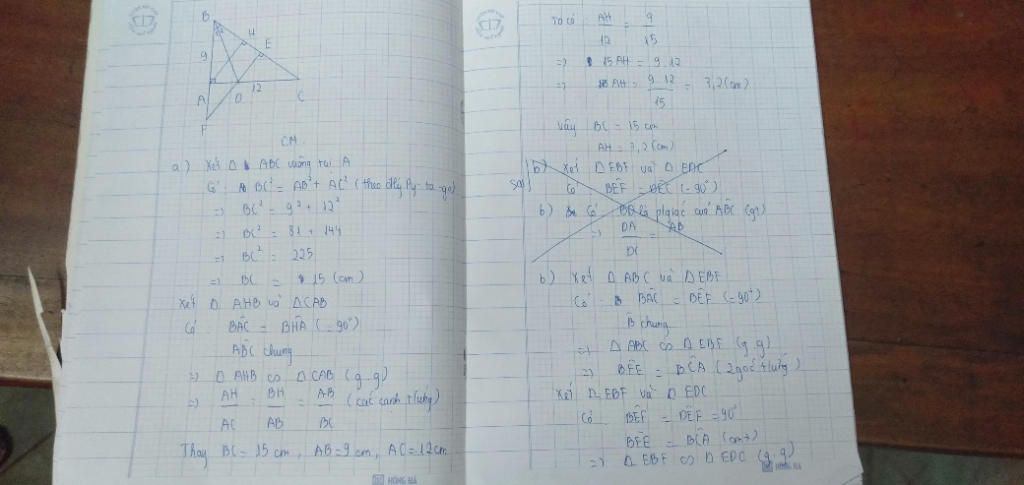 B
H
E
9
12
A
D
C
F
CM
a) Xét Δ ABC vuông tại A
Có BC² = AB² + AC² (theo đlý Py-ta-go)
=> BC² = 9² + 12²
=> BC² = 81 + 144
=> BC² = 225
=> BC = 15 (cm)
Xét Δ AHB và ΔCAB
Có BÂC = BĤA (=90°)
AB̂C chung
=> Δ AHB ∽ Δ CAB (g-g)
=> AH/AC = BH/AB = AB/BC (các cạnh tứ)
Thay BC = 15 cm, AB = 9 cm, AC = 12 cm
Ta có AH/12 = 9/15
=> 15 AH = 9.12
=> AH = 9.12/15 = 7,2 (cm)
Vậy BC = 15 cm
AH = 7,2 (cm)
b) Xét Δ EBF và Δ EDC
sai
Có BÊF = DÊC (=90°)
b) Có BD là pgiác của AB̂C (gt)
=> DA/DC = AB
b) Xét Δ ABC và Δ EBF
Có BÂC = BÊF (=90°)
B̂ chung
=> Δ ABC ∽ Δ EBF (g.g)
=> BF̂E = BĈA (2 góc tứ)
Xét Δ EBF và Δ EDC
Có BÊF = DÊF = 90°
BF̂E = BĈA (cmt)
=> Δ EBF ∽ Δ EDC (g.g)
HỒNG HÀ
HỒNG HÀ